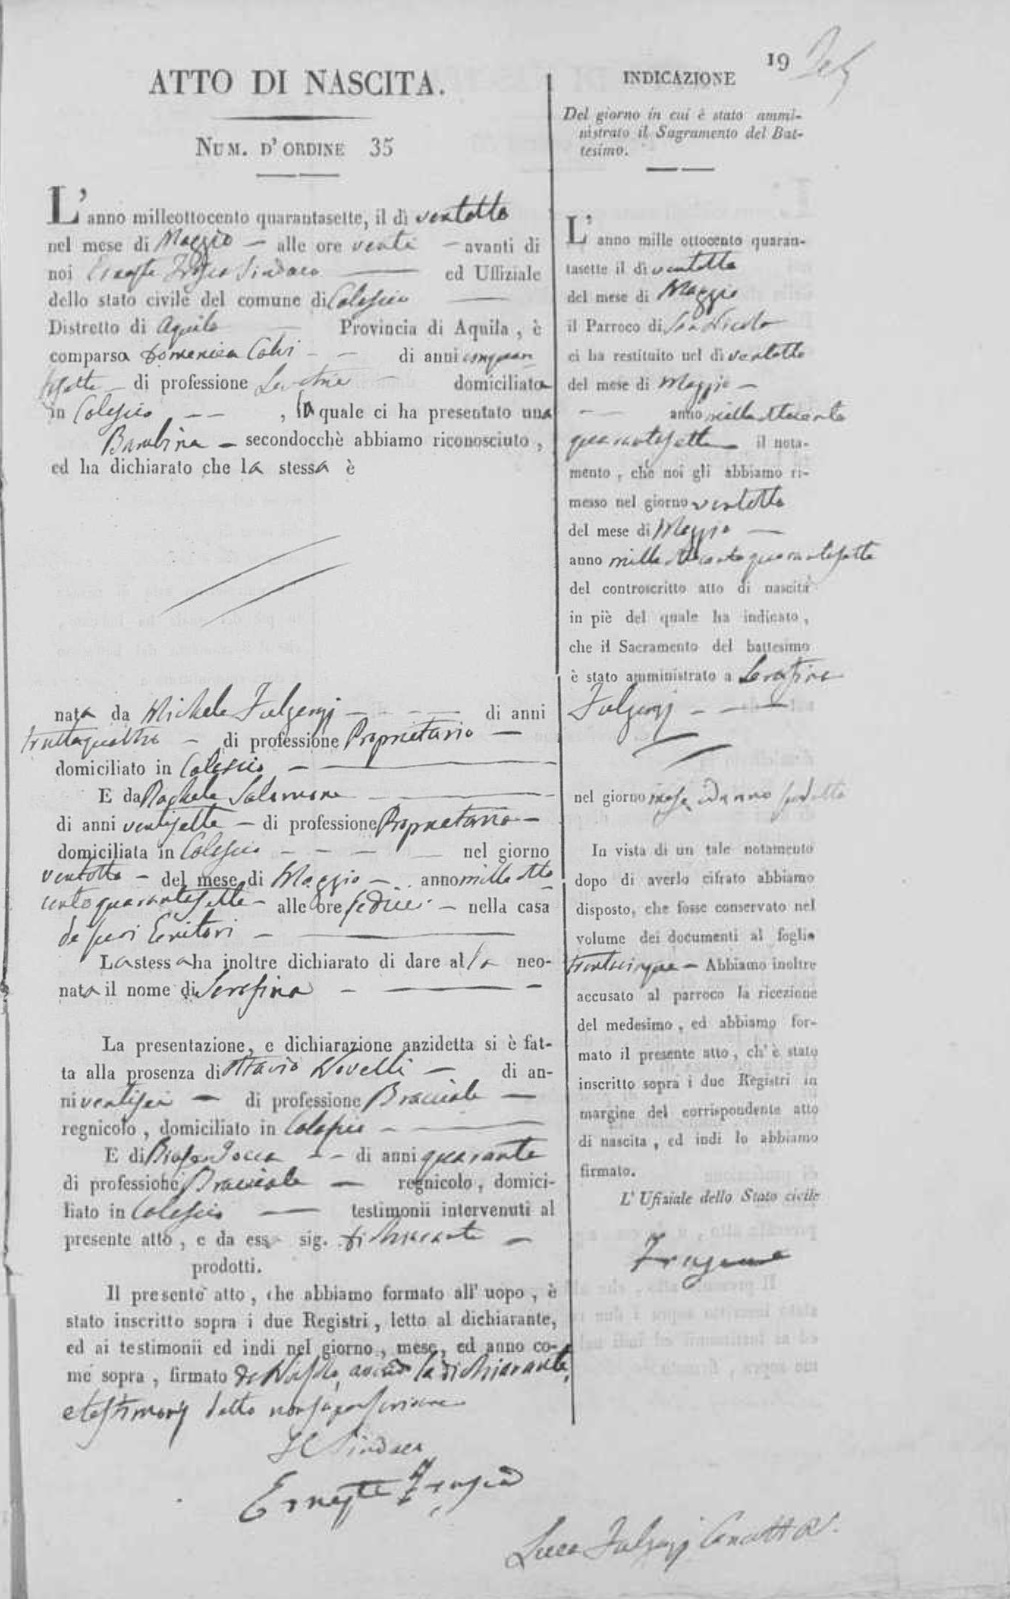 19
ATTO DI NASCITA.
NUM. D' ORDINE 35
L'anno milleottocento quarantasette, il dì ventotto
nel mese di Maggio — alle ore venti — avanti di
noi Sindaco — ed Uffiziale
dello stato civile del comune di
Distretto di Aquila — Provincia di Aquila, è
comparsa Domenica — di anni cinquan
tasette — di professione — domiciliata
in —, la quale ci ha presentato una
Bambina — secondocchè abbiamo riconosciuto,
ed ha dichiarato che la stessa è
nata da Michele Fulgenzj — di anni
trentaquattro — di professione Proprietario —
domiciliato in
E da Rachele Salomone —
di anni ventisette — di professione Proprietaria —
domiciliata in — nel giorno
ventotto — del mese di Maggio — anno mille otto
cento quarantasette — alle ore sedici — nella casa
de suoi Genitori —
La stessa ha inoltre dichiarato di dare alla neo-
nata il nome di Serafina —
La presentazione, e dichiarazione anzidetta si è fat-
ta alla prosenza di Ottavio Novelli — di an-
ni ventisei — di professione Bracciale —
regnicolo, domiciliato in
E di — di anni quaranta
di professione Bracciale — regnicolo, domici-
liato in — testimonii intervenuti al
presente atto, e da essa sig. dichiarante —
prodotti.
Il presente atto, che abbiamo formato all' uopo, è
stato inscritto sopra i due Registri, letto al dichiarante,
ed ai testimonii ed indi nel giorno, mese, ed anno co-
me sopra, firmato da Noi solo, avendo la dichiarante,
e testimonj detto non saper scrivere
Il Sindaco
INDICAZIONE
Del giorno in cui è stato ammi-
nistrato il Sagramento del Bat-
tesimo.
L'anno mille ottocento quaran-
tasette il dì ventotto
del mese di Maggio
il Parroco di San Nicola
ci ha restituito nel dì ventotto
del mese di Maggio —
— anno mille ottocento
quarantasette il nota-
mento, chè noi gli abbiamo ri-
messo nel giorno ventotto
del mese di Maggio —
anno mille ottocento quarantasette
del controscritto atto di nascita
in piè del quale ha indicato,
che il Sacramento del battesimo
è stato amministrato a Serafina
Fulgenzj —
nel giorno mese ed anno sudetto
In vista di un tale notamento
dopo di averlo cifrato abbiamo
disposto, che fosse conservato nel
volume dei documenti al foglio
trentacinque — Abbiamo inoltre
accusato al parroco la ricezione
del medesimo, ed abbiamo for-
mato il presente atto, ch'è stato
inscritto sopra i due Registri in
margine del corrispondente atto
di nascita, ed indi lo abbiamo
firmato.
L' Ufiziale dello Stato civile
Luca Fulgenzj